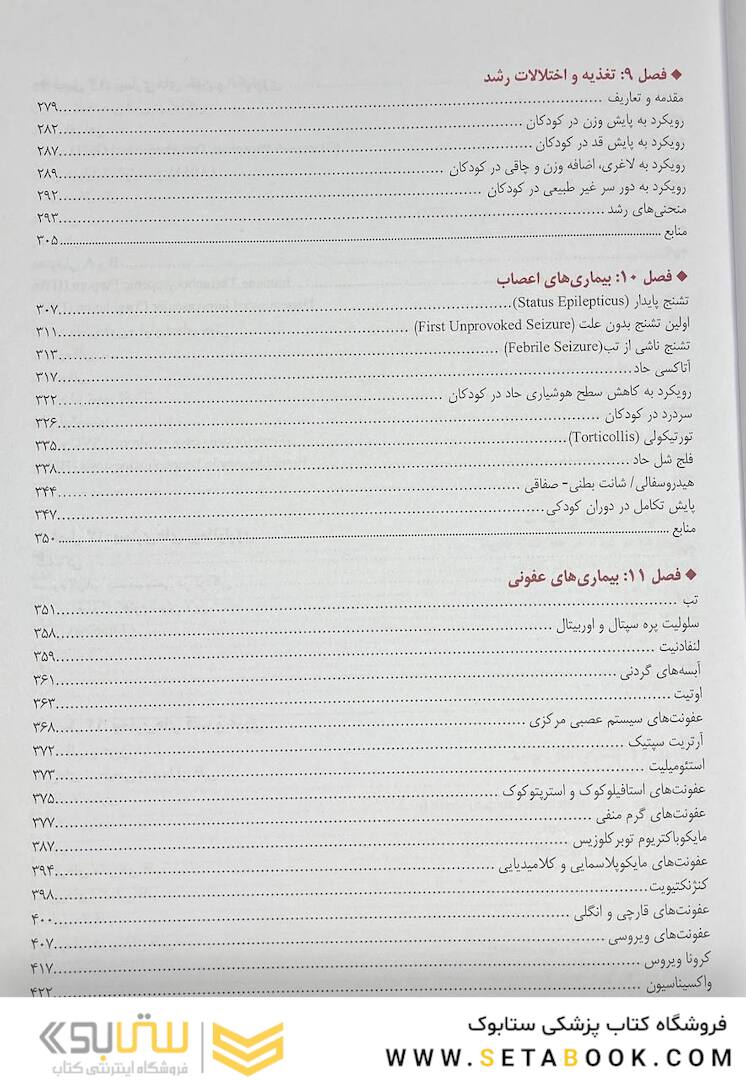 ◆ فصل ۹: تغذیه و اختلالات رشد
مقدمه و تعاریف ........ ۲۷۹
رویکرد به پایش وزن در کودکان ........ ۲۸۲
رویکرد به پایش قد در کودکان ........ ۲۸۷
رویکرد به لاغری، اضافه وزن و چاقی در کودکان ........ ۲۸۹
رویکرد به دور سر غیر طبیعی در کودکان ........ ۲۹۲
منحنی‌های رشد ........ ۲۹۳
منابع ........ ۳۰۵
◆ فصل ۱۰: بیماری‌های اعصاب
تشنج پایدار (Status Epilepticus) ........ ۳۰۷
اولین تشنج بدون علت (First Unprovoked Seizure) ........ ۳۱۱
تشنج ناشی از تب(Febrile Seizure) ........ ۳۱۳
آتاکسی حاد ........ ۳۱۷
رویکرد به کاهش سطح هوشیاری حاد در کودکان ........ ۳۲۲
سردرد در کودکان ........ ۳۲۶
تورتیکولی (Torticollis) ........ ۳۳۵
فلج شل حاد ........ ۳۳۸
هیدروسفالی/ شانت بطنی- صفاقی ........ ۳۴۴
پایش تکامل در دوران کودکی ........ ۳۴۷
منابع ........ ۳۵۰
◆ فصل ۱۱: بیماری‌های عفونی
تب ........ ۳۵۱
سلولیت پره سپتال و اوربیتال ........ ۳۵۸
لنفادنیت ........ ۳۵۹
آبسه‌های گردنی ........ ۳۶۱
اوتیت ........ ۳۶۳
عفونت‌های سیستم عصبی مرکزی ........ ۳۶۸
آرتریت سپتیک ........ ۳۷۲
استئومیلیت ........ ۳۷۳
عفونت‌های استافیلوکوک و استرپتوکوک ........ ۳۷۵
عفونت‌های گرم منفی ........ ۳۷۷
مایکوباکتریوم توبرکلوزیس ........ ۳۸۷
عفونت‌های مایکوپلاسمایی و کلامیدیایی ........ ۳۹۴
کنژنکتیویت ........ ۳۹۸
عفونت‌های قارچی و انگلی ........ ۴۰۰
عفونت‌های ویروسی ........ ۴۰۷
کرونا ویروس ........ ۴۱۷
واکسیناسیون ........ ۴۲۲
فروشگاه کتاب پزشکی ستابوک
WWW.SETABOOK.COM
ستابوک
فروشگاه اینترنتی کتاب